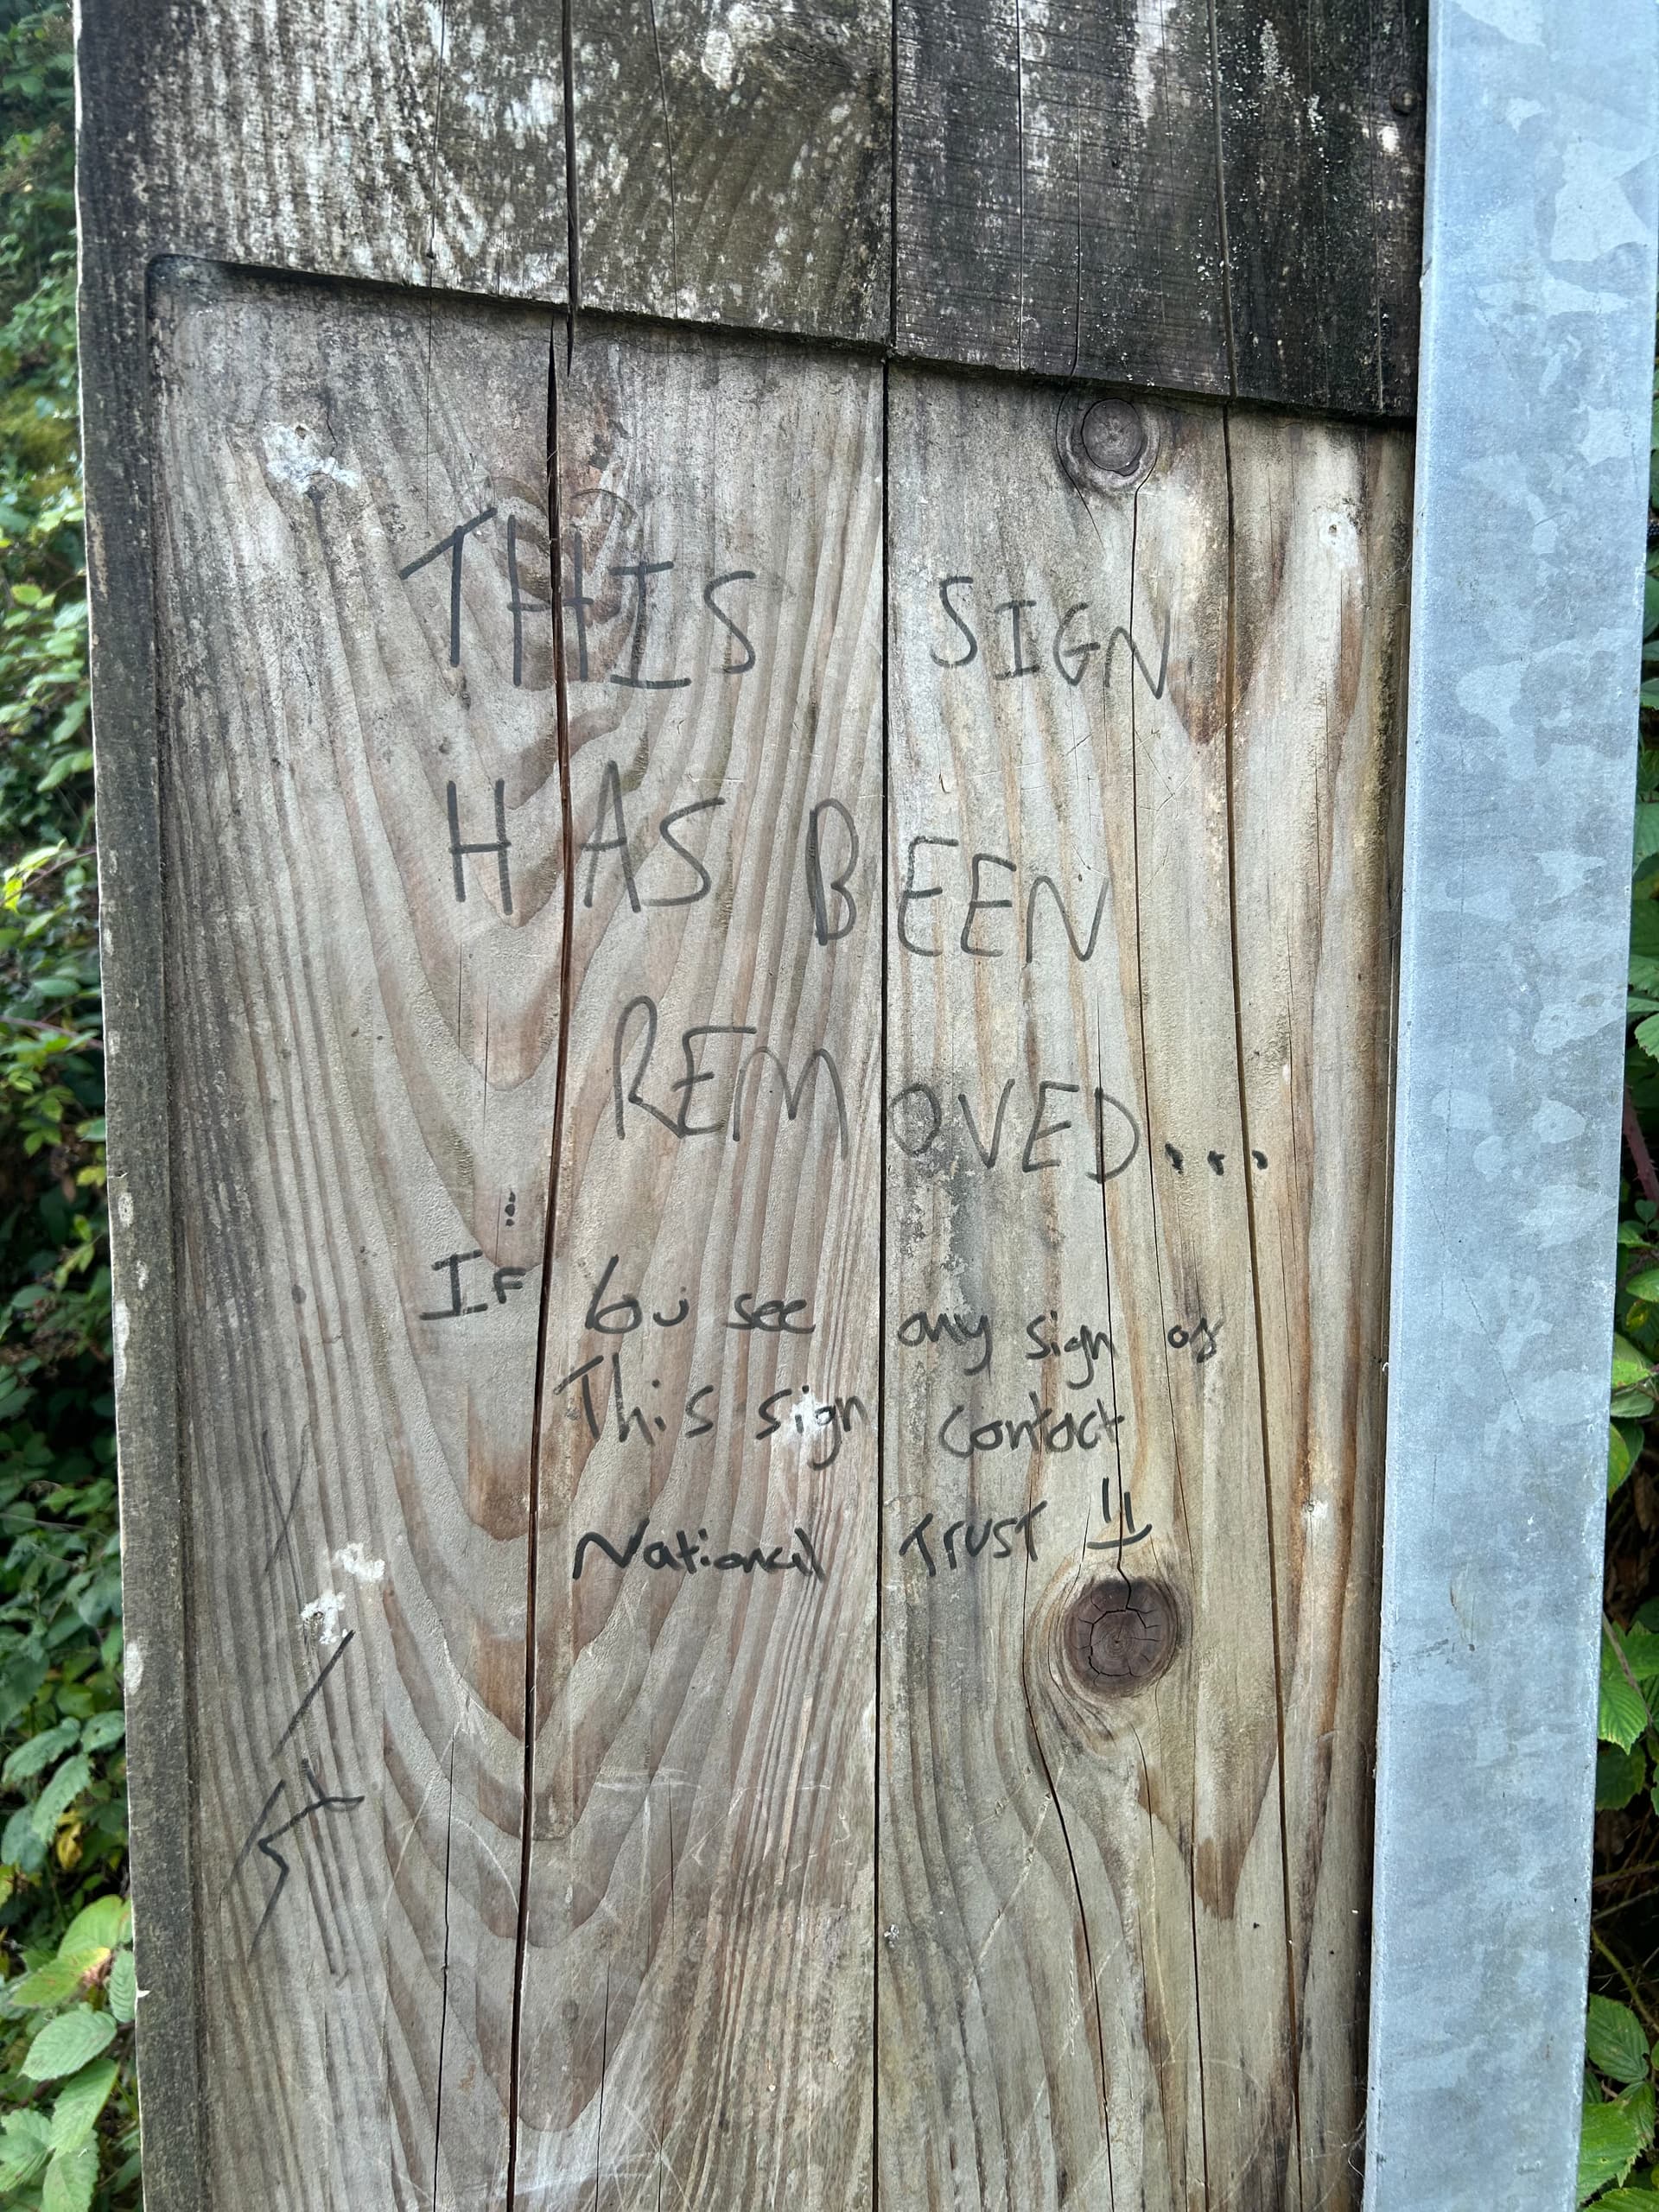 THIS SIGN
HAS BEEN
REMOVED...
IF you see any sign of
This sign contact
National TRUST